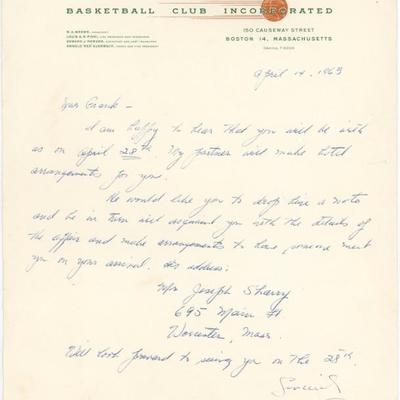 BASKETBALL CLUB INCORPORATED
150 CAUSEWAY STREET
BOSTON 14, MASSACHUSETTS
April 14, 1963
Dear Frank –
I am happy to hear that you will be with
us on April 28th. My partner will make hotel
arrangements for you.
He would like you to drop him a note
and he in turn will acquaint you with the details of
the affair and make arrangements to have someone meet
you on your arrival. His address:
Mr. Joseph Sharry
695 Main St
Worcester, Mass.
Will look forward to seeing you on the 28th.